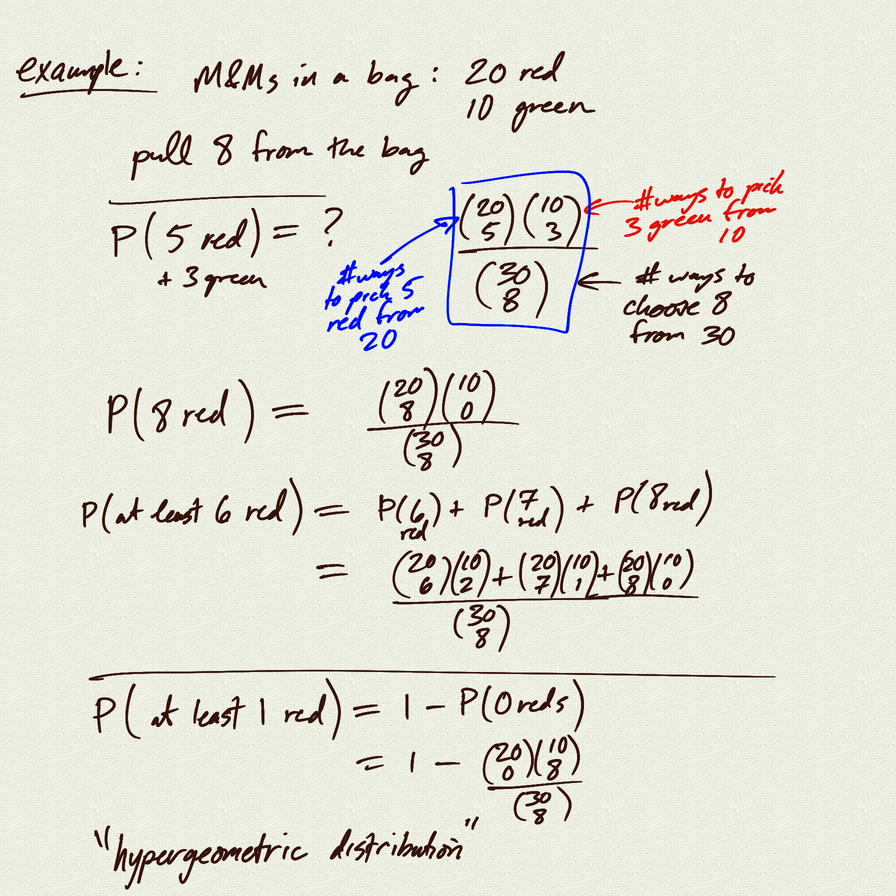 example: M&Ms in a bag: 20 red
10 green
pull 8 from the bag
P(5 red) = ?
+ 3 green
(20 5)(10 3)
(30 8)
#ways to pick 5 red from 20
#ways to pick 3 green from 10
# ways to choose 8 from 30
P(8 red) = (20 8)(10 0)
(30 8)
P(at least 6 red) = P(6 red) + P(7 red) + P(8 red)
= (20 6)(10 2)+(20 7)(10 1)+(20 8)(10 0)
(30 8)
P(at least 1 red) = 1 - P(0 reds)
= 1 - (20 0)(10 8)
(30 8)
"hypergeometric distribution"